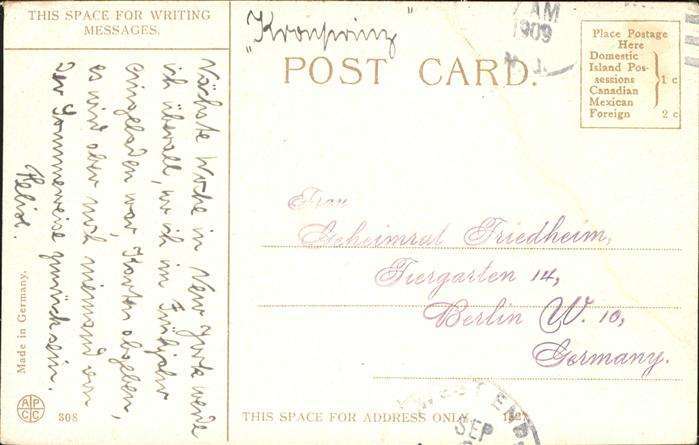 THIS SPACE FOR WRITING
MESSAGES.
"Kronprinz"
AM
1909
N. J.
POST CARD.
Place Postage
Here
Domestic
Island Pos-
sessions
Canadian
Mexican
1 c
Foreign 2 c
Nächste Woche in New York werde
ich überall, wo ich im Frühjahr
eingeladen war, Karten abgeben,
es wird aber noch niemand von
der Sommerreise zurück sein.
Frau
Geheimrat Friedheim,
Tiergarten 14,
Berlin W. 10,
Germany.
Made in Germany.
A P
C C
308
THIS SPACE FOR ADDRESS ONLY.
SEP